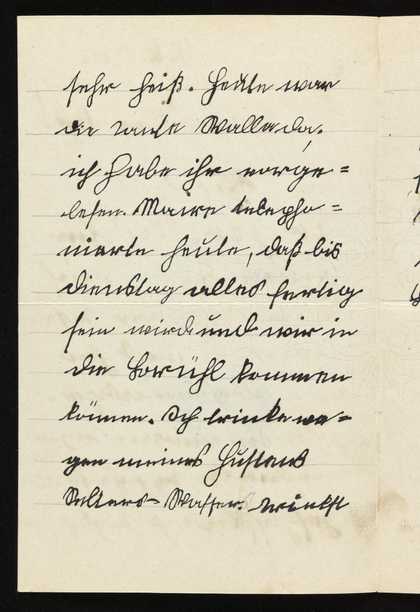 sehr heiß. Heute war
die Tante Walla da.
ich habe ihr vorge=
lesen. Maire telepho=
nierte heute, daß bis
dienstag alles fertig
sein wird und wir in
die Brühl kommen
können. Ich trinke we=
gen meines Hustens
Selters-Wasser. trinkst